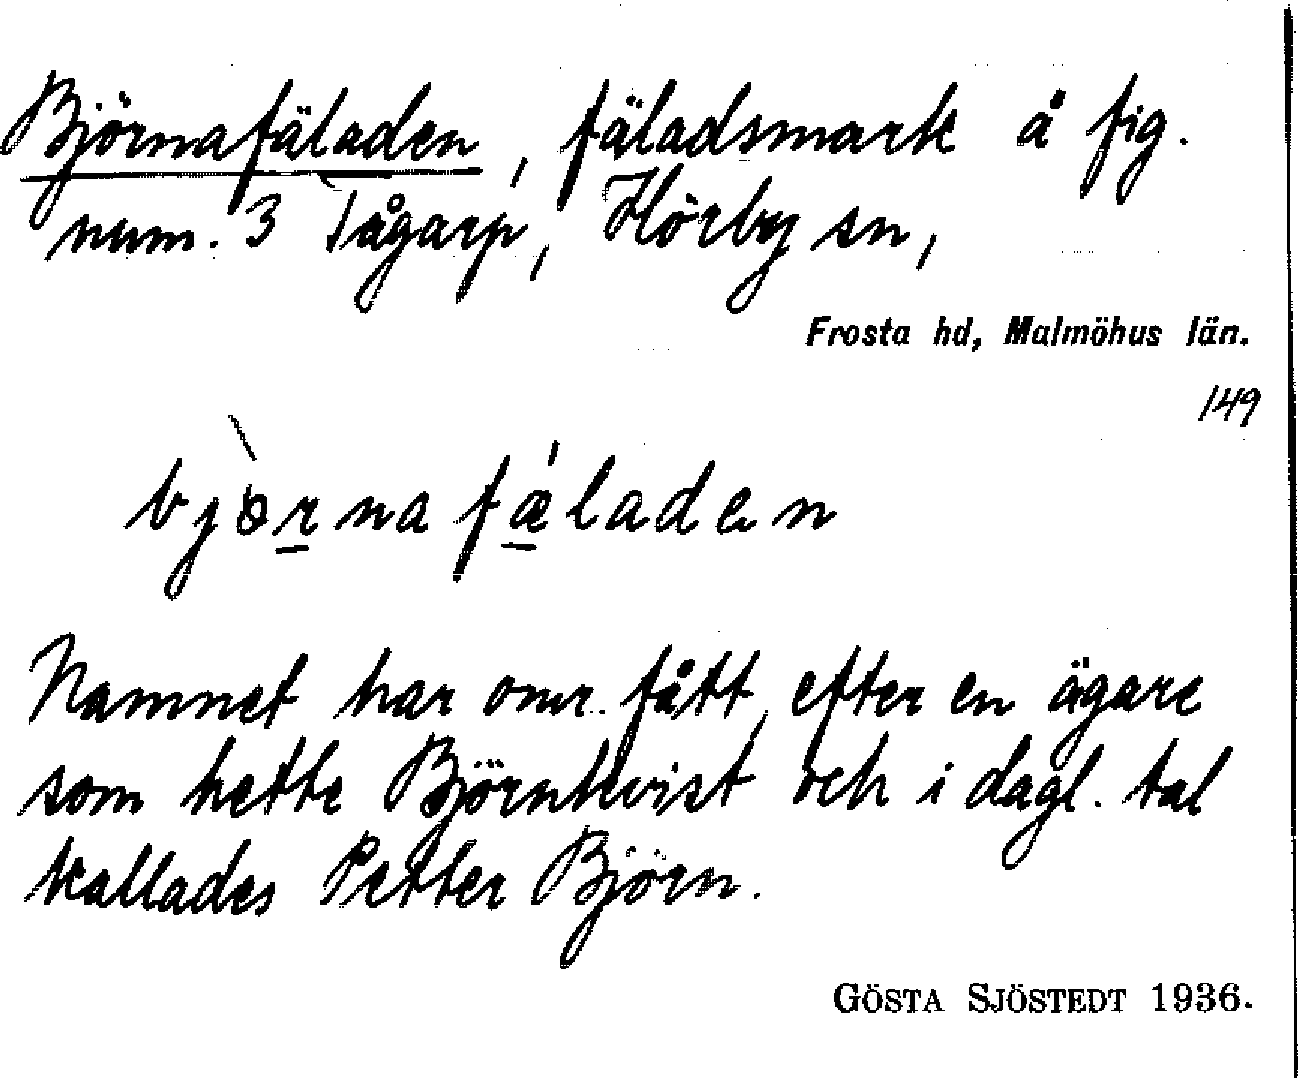 Björnafäladen, fäladsmark å fig.
num. 3 Tågarp, Hörby sn,
Frosta hd, Malmöhus län.
149
bjòrnafǽladen
Namnet har omr. fått efter en ägare
som hette Björnkvist och i dagl. tal
kallades Petter Björn.
GÖSTA SJÖSTEDT 1936.